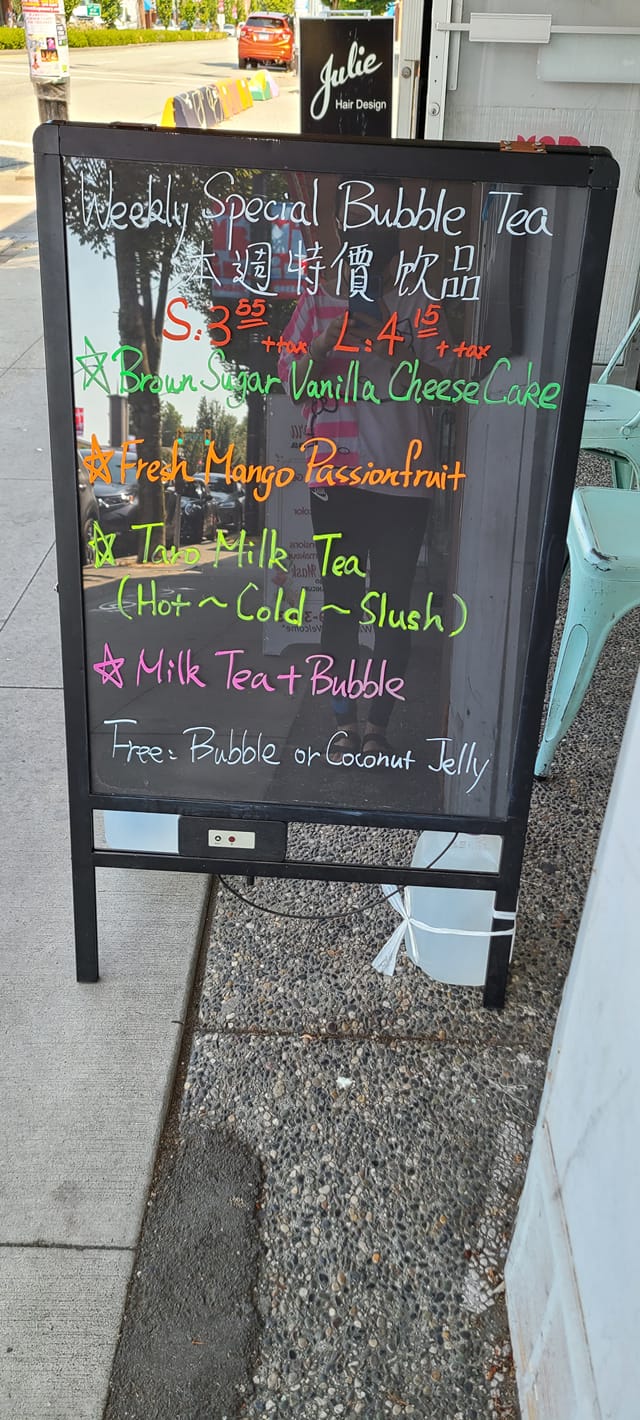 Julie
Hair Design
Weekly Special Bubble Tea
本週特價 飲品
S: 3 55 + tax L: 4 15 + tax
Brown Sugar Vanilla Cheese Cake
Fresh Mango Passionfruit
Taro Milk Tea
(Hot ~ Cold ~ Slush)
Milk Tea + Bubble
Free: Bubble or Coconut Jelly